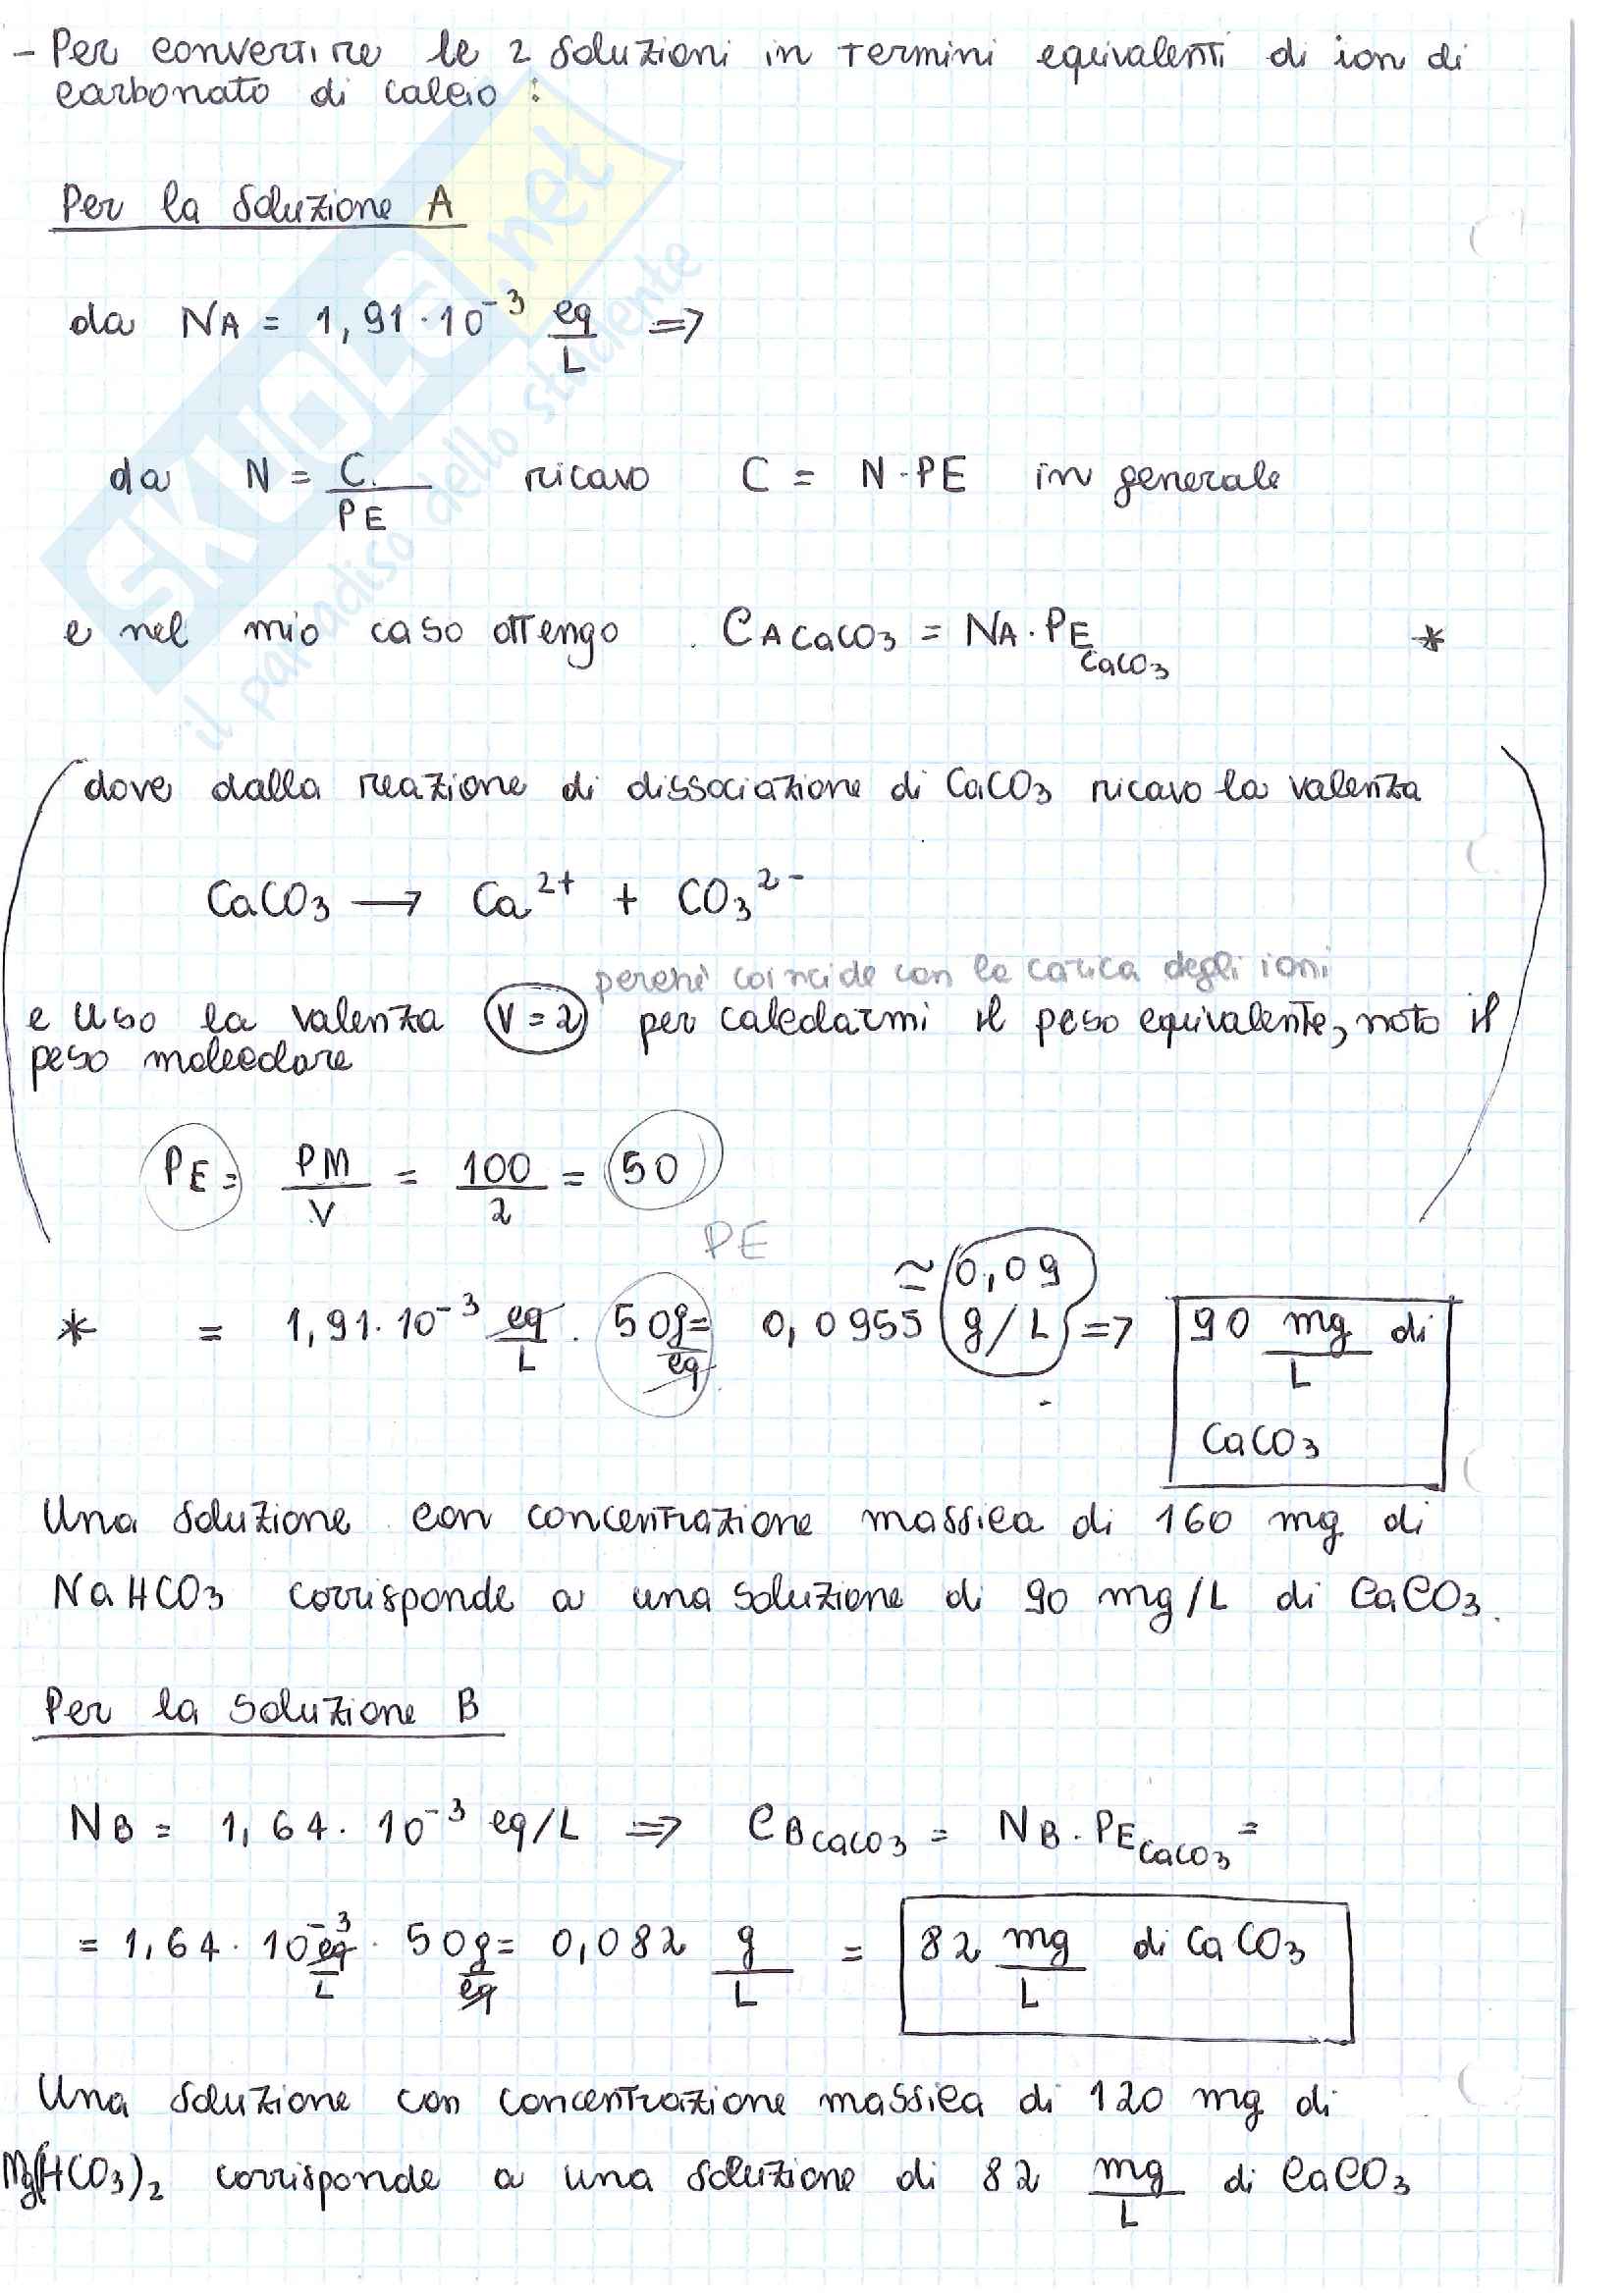 - Per convertire le 2 soluzioni in termini equivalenti di ion di
carbonato di calcio :
Per la soluzione A
da NA = 1,91·10⁻³ eq/L =>
da N = C/PE ricavo C = N·PE in generale
e nel mio caso ottengo CA CaCO3 = NA·PE CaCO3 *
(dove dalla reazione di dissociazione di CaCO3 ricavo la valenza
CaCO3 → Ca²⁺ + CO3²⁻
perchè coincide con la carica degli ioni
e uso la valenza V=2 per calcolarmi il peso equivalente, noto il
peso molecolare
PE = PM/V = 100/2 = 50)
PE
≃ 0,09
* = 1,91·10⁻³ eq/L · 50 g/eq = 0,0955 g/L => 90 mg/L di
CaCO3
Una soluzione con concentrazione massica di 160 mg di
NaHCO3 corrisponde a una soluzione di 90 mg/L di CaCO3.
Per la soluzione B
NB = 1,64·10⁻³ eq/L => CB CaCO3 = NB·PE CaCO3 =
= 1,64·10⁻³ eq/L · 50 g/eq = 0,082 g/L = 82 mg/L di CaCO3
Una soluzione con concentrazione massica di 120 mg di
Mg(HCO3)2 corrisponde a una soluzione di 82 mg/L di CaCO3
SKUOLA.net
il paradiso dello studente